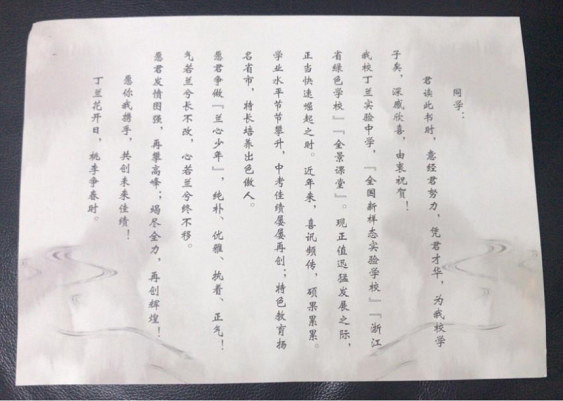 同学：
君读此书时，意经君努力，凭君才华，为我校学
子矣，深感欣喜，由衷祝贺！
我校丁兰实验中学，『全国新样态实验学校』『浙江
省绿色学校』『全景课堂』。现正值迅猛发展之际，
正当快速崛起之时。近年来，喜讯频传，硕果累累。
学业水平节节攀升，中考佳绩屡屡再创；特色教育扬
名省市，特长培养出色傲人。
愿君争做『兰心少年』，纯朴、优雅、执着、正气！
气若兰兮长不改，心若兰兮终不移。
愿君发愤图强，再攀高峰；竭尽全力，再创辉煌！
愿你我携手，共创未来佳绩！
丁兰花开日，桃李争春时。